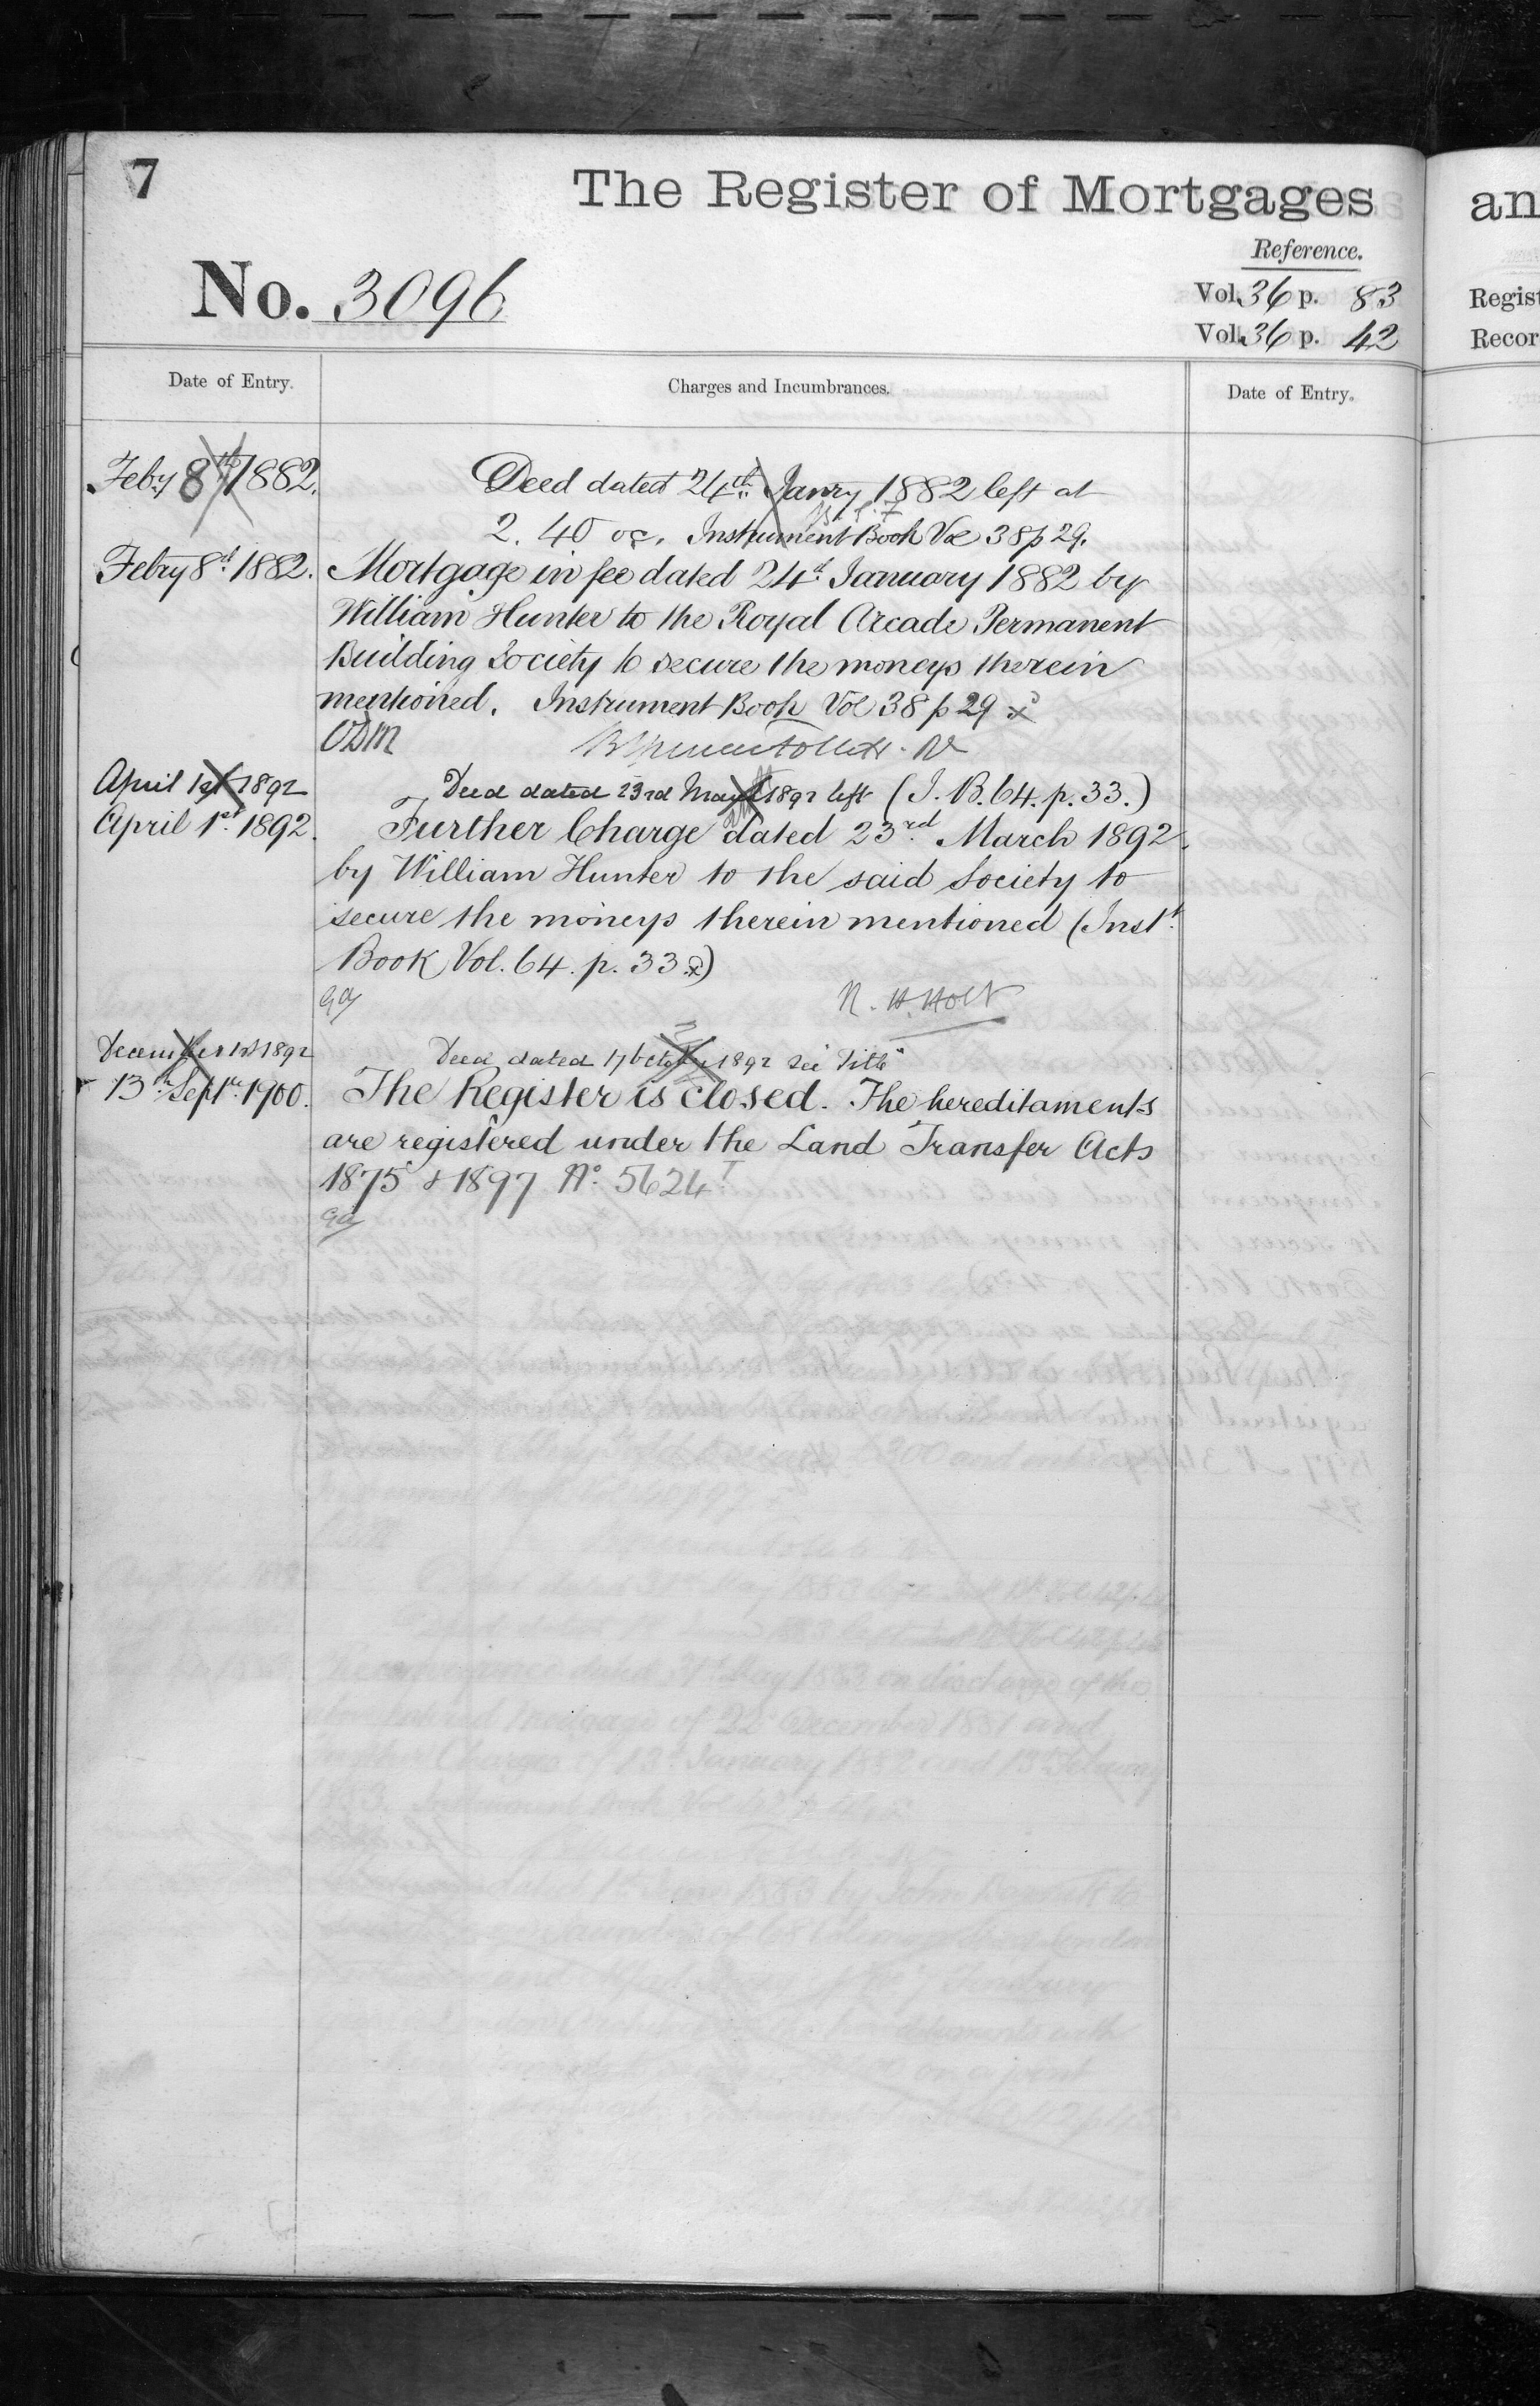 7
The Register of Mortgages
Reference.
No. 3096
Vol. 36 p. 83
Vol. 36 p. 42
Date of Entry.
Charges and Incumbrances.
Date of Entry.
Feby 8th 1882.
Deed dated 24th Janry 1882 left at
2. 40 oc. Instrument Book Vol 38 p 29.
Febry 8th 1882.
Mortgage in fee dated 24th January 1882 by
William Hunter to the Royal Arcade Permanent
Building Society to secure the moneys therein
mentioned. Instrument Book Vol 38 p 29
ODM
April 1st 1892
Deed dated 23rd March 1892 left (I. B. 64. p. 33.)
April 1st 1892.
Further Charge dated 23rd March 1892.
by William Hunter to the said Society to
secure the moneys therein mentioned (Inst.t
Book Vol. 64. p. 33.)
R. H. Holt
December 1st 1892
Deed dated 17 October 1892 see "Title"
13th Septr. 1900.
The Register is closed. The hereditaments
are registered under the Land Transfer Acts
1875 & 1897 No. 5624
an
Regist
Recor